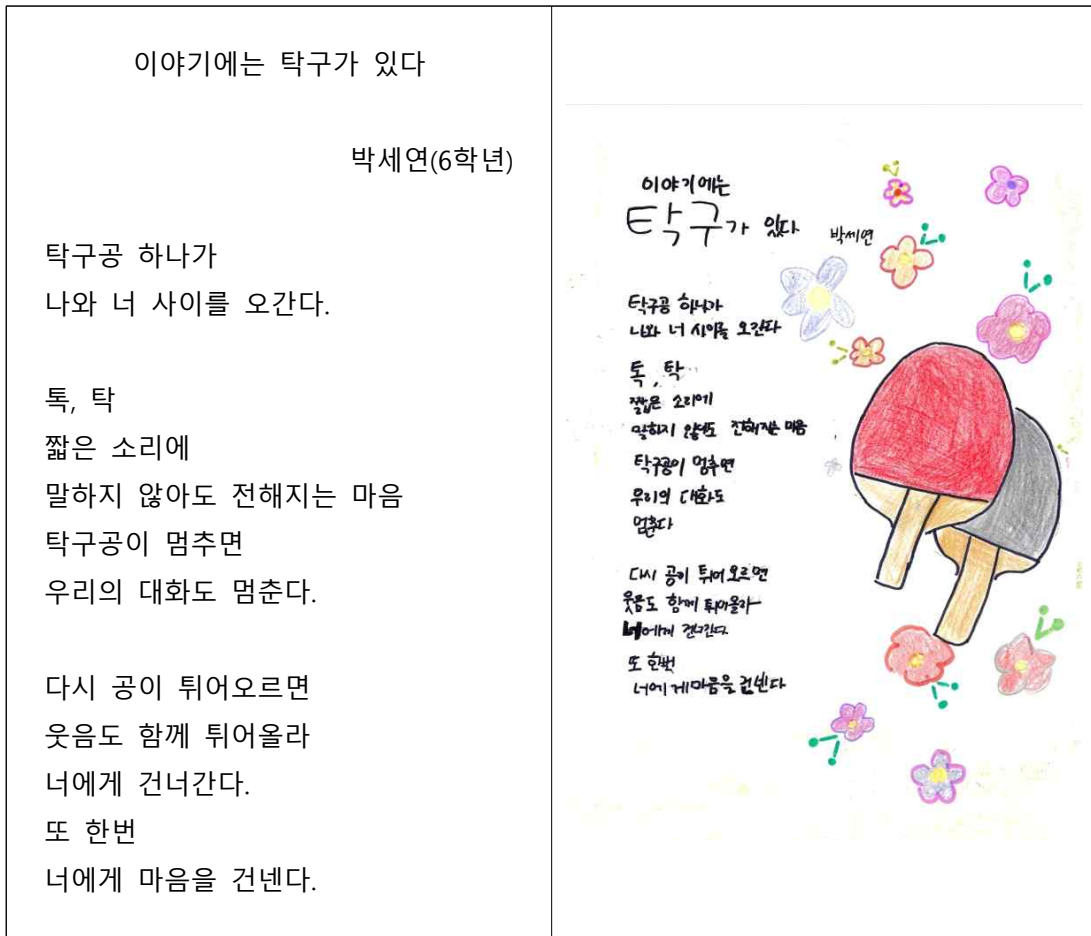 이야기에는 탁구가 있다
박세연(6학년)
탁구공 하나가
나와 너 사이를 오간다.
톡, 탁
짧은 소리에
말하지 않아도 전해지는 마음
탁구공이 멈추면
우리의 대화도 멈춘다.
다시 공이 튀어오르면
웃음도 함께 튀어올라
너에게 건너간다.
또 한번
너에게 마음을 건넨다.
이야기에는
탁구가 있다
박세연
탁구공 하나가
나와 너 사이를 오간다
톡, 탁
짧은 소리에
말하지 않아도 전해지는 마음
탁구공이 멈추면
우리의 대화도
멈춘다
다시 공이 튀어오르면
웃음도 함께 튀어올라
너에게 건너간다.
또 한번
너에게 마음을 건넨다